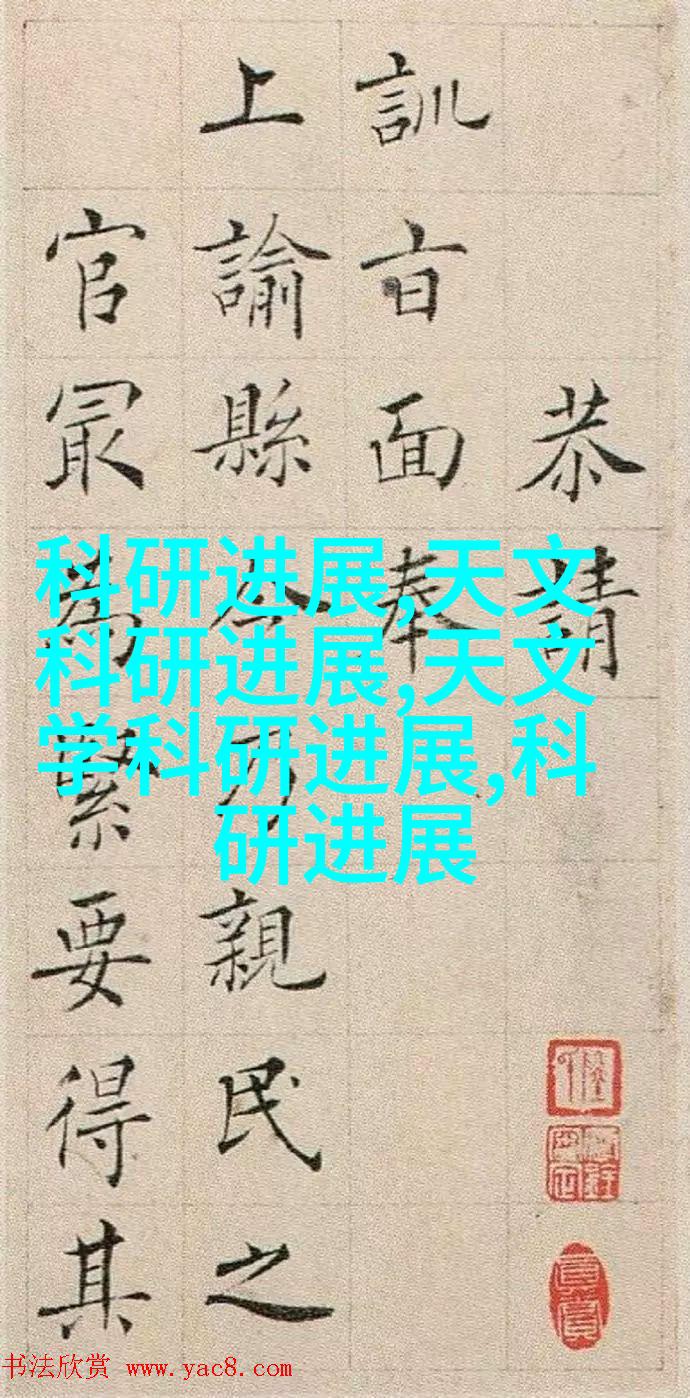 恭請
訓旨面奉
上諭縣令乃親民之
官最為緊要得其
科研进展,天文
科研进展,天文
学科研进展,科
研进展
书法欣赏 www.yac8.com